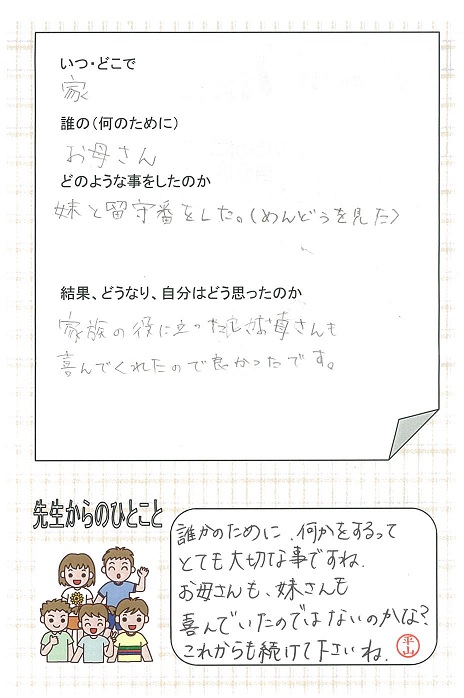 いつ・どこで
家
誰の(何のために)
お母さん
どのような事をしたのか
妹と留守番をした。(めんどうを見た)
結果、どうなり、自分はどう思ったのか
家族の役に立った お母さんも
喜んでくれたので良かったです。
先生からのひとこと
誰かのために、何かをするって
とても大切な事ですね.
お母さんも、妹さんも
喜んでいたのではないのかな?
これからも続けて下さいね.
平山